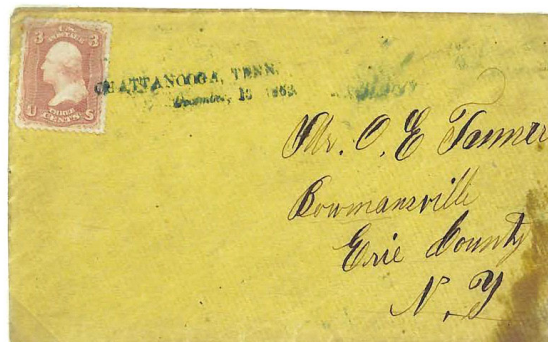 3 U.S. 3
POSTAGE
U THREE S
CENTS
CHATTANOOGA, TENN.
December, 1863.
Mr. O. E Tanner
Bowmansville
Erie County
N. Y